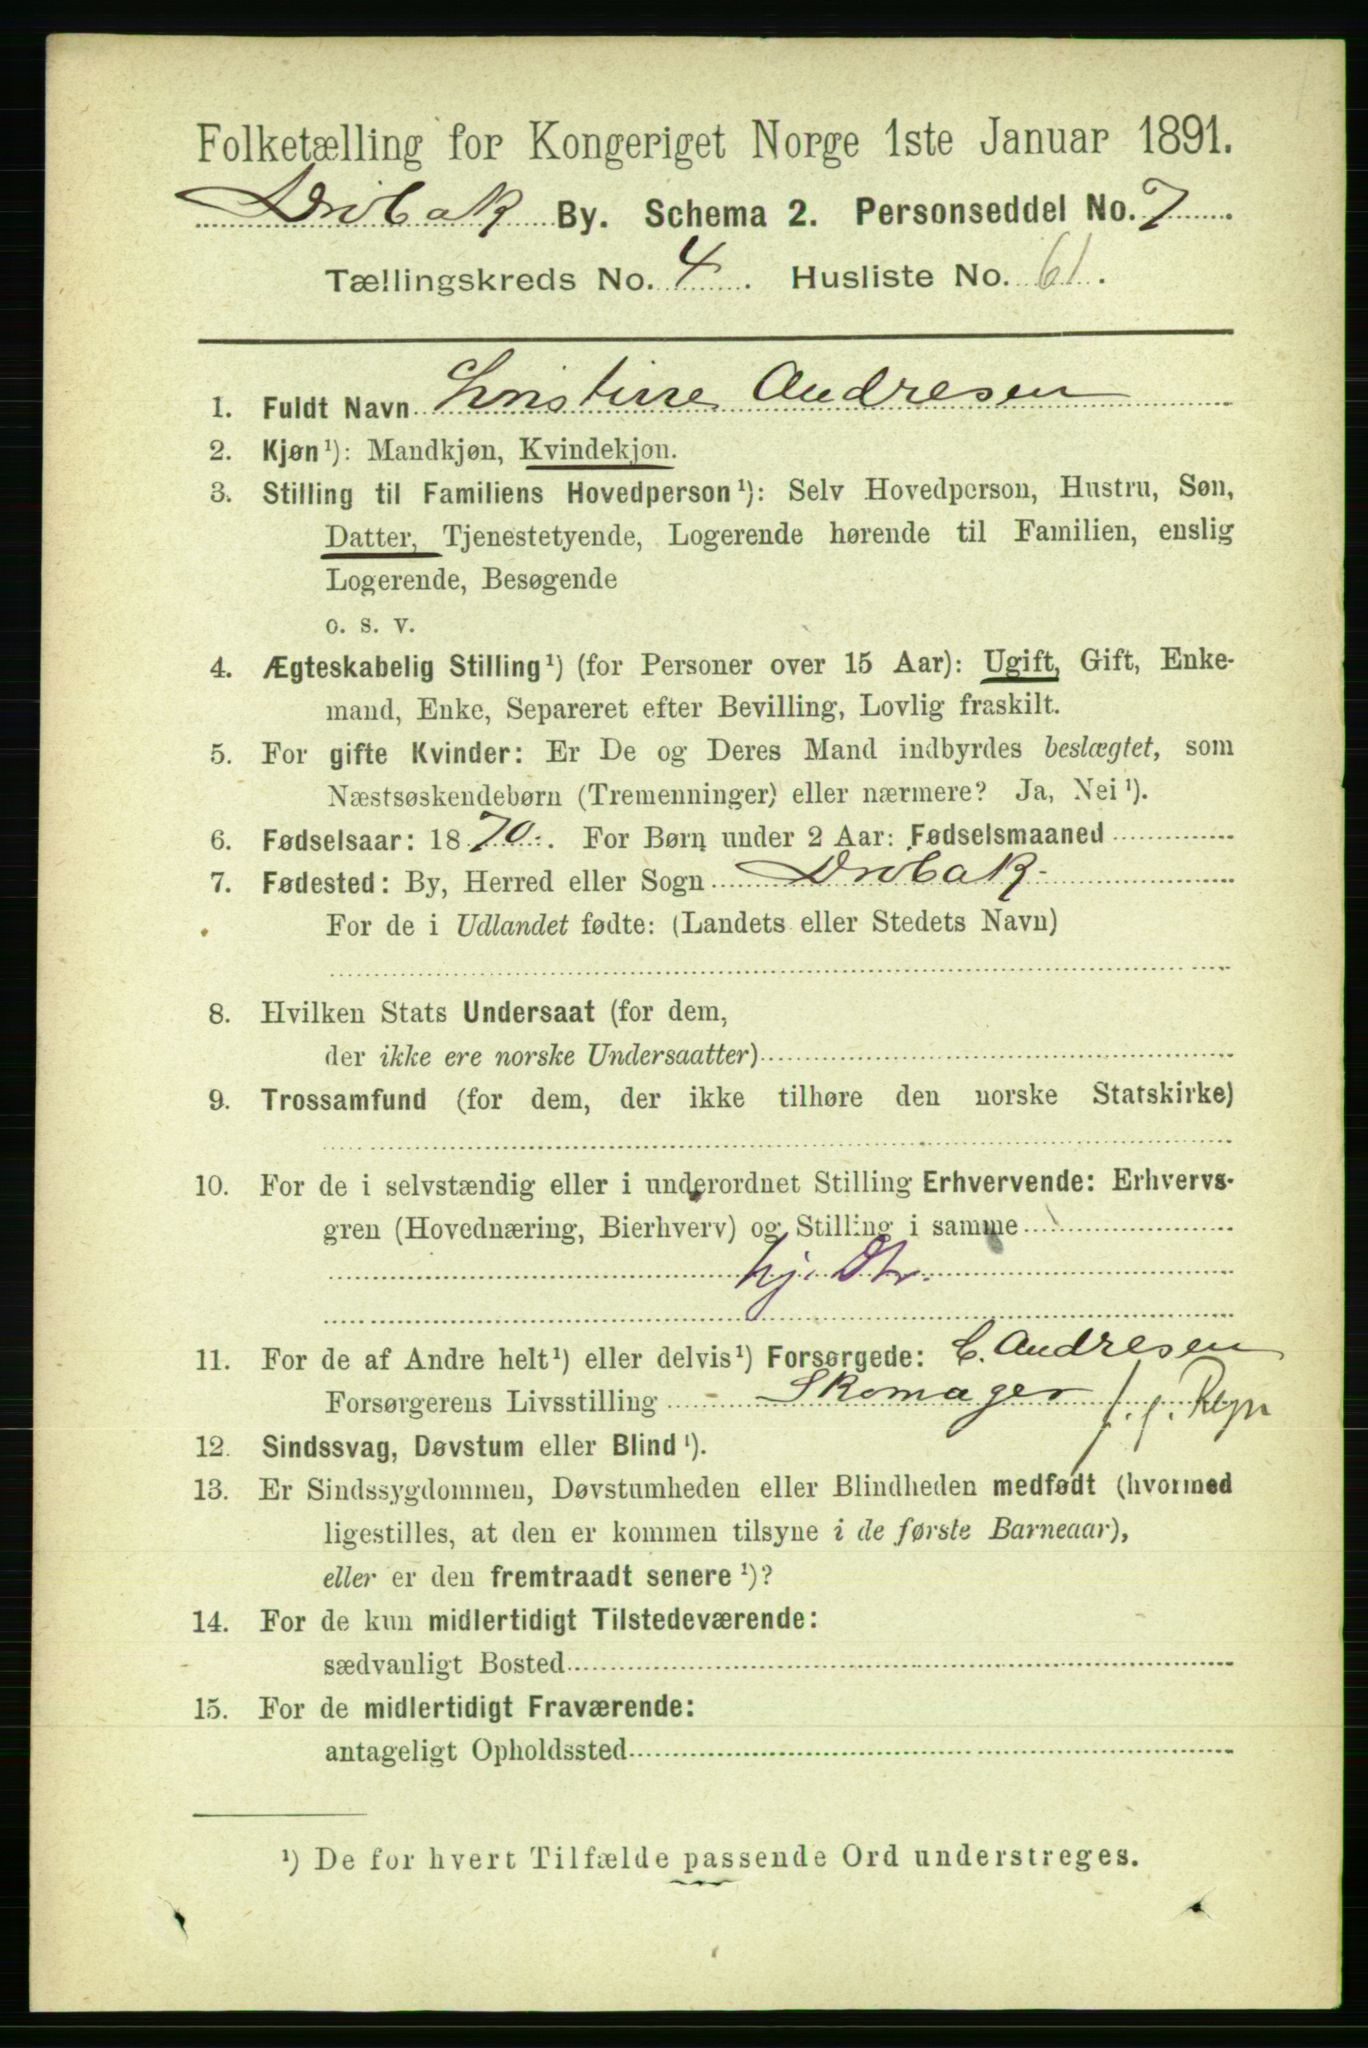 Folketælling for Kongeriget Norge 1ste Januar 1891.
Drøbak By. Schema 2. Personseddel No. 7.
Tællingskreds No. 4. Husliste No. 61.
1. Fuldt Navn Kristine Andresen
2. Kjøn¹): Mandkjøn, Kvindekjøn.
3. Stilling til Familiens Hovedperson¹): Selv Hovedperson, Hustru, Søn,
Datter, Tjenestetyende, Logerende hørende til Familien, enslig
Logerende, Besøgende
o. s. v.
4. Ægteskabelig Stilling¹) (for Personer over 15 Aar): Ugift, Gift, Enke-
mand, Enke, Separeret efter Bevilling, Lovlig fraskilt.
5. For gifte Kvinder: Er De og Deres Mand indbyrdes beslægtet, som
Næstsøskendebørn (Tremenninger) eller nærmere? Ja, Nei¹).
6. Fødselsaar: 1870. For Børn under 2 Aar: Fødselsmaaned
7. Fødested: By, Herred eller Sogn Drøbak
For de i Udlandet fødte: (Landets eller Stedets Navn)
8. Hvilken Stats Undersaat (for dem,
der ikke ere norske Undersaatter)
9. Trossamfund (for dem, der ikke tilhøre den norske Statskirke)
10. For de i selvstændig eller i underordnet Stilling Erhvervende: Erhvervs-
gren (Hovednæring, Bierhverv) og Stilling i samme
hj. Dtr.
11. For de af Andre helt¹) eller delvis¹) Forsørgede: C. Andresen
Forsørgerens Livsstilling Skomager
12. Sindssvag, Døvstum eller Blind¹).
13. Er Sindssygdommen, Døvstumheden eller Blindheden medfødt (hvormed
ligestilles, at den er kommen tilsyne i de første Barneaar),
eller er den fremtraadt senere¹)?
14. For de kun midlertidigt Tilstedeværende:
sædvanligt Bosted
15. For de midlertidigt Fraværende:
antageligt Opholdssted
¹) De for hvert Tilfælde passende Ord understreges.